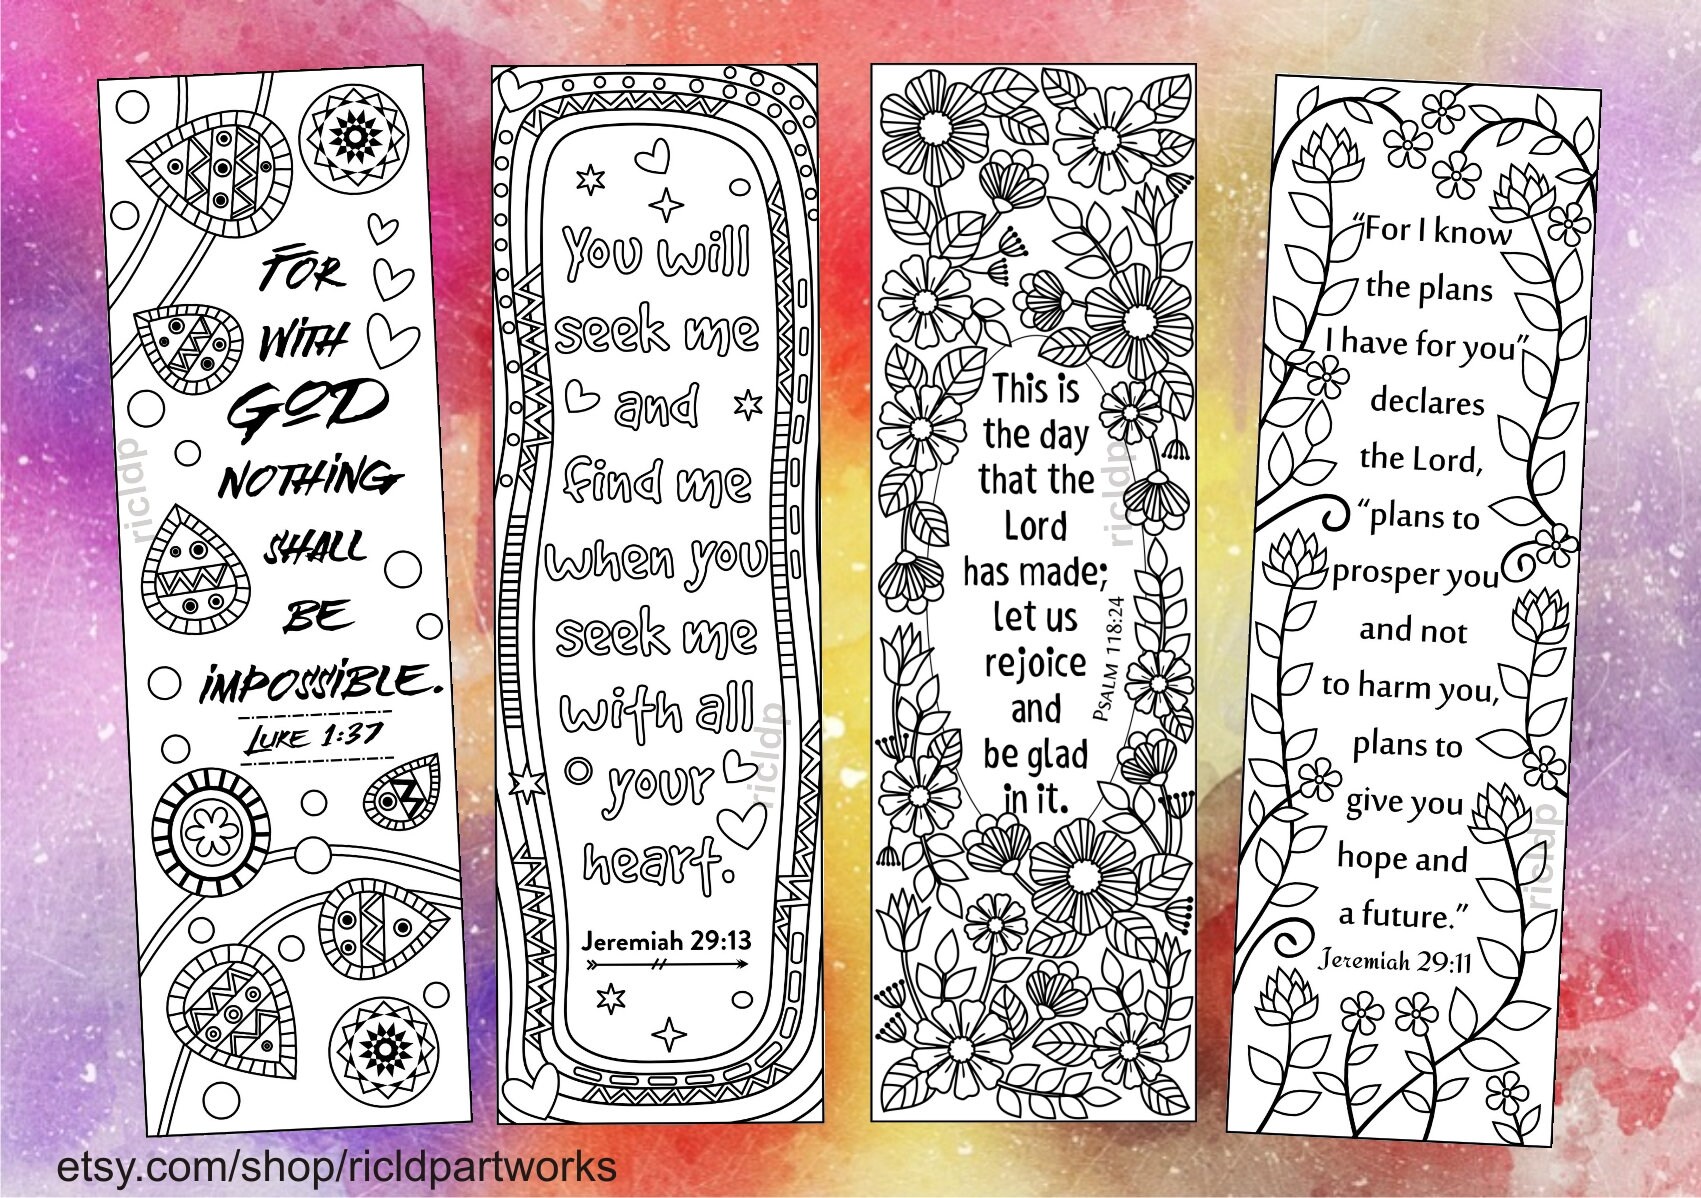 FOR
WITH
GOD
NOTHING
SHALL
BE
IMPOSSIBLE.
LUKE 1:37
ricldp
You will
seek me
and
find me
when you
seek me
with all
your
heart.
Jeremiah 29:13
ricldp
This is
the day
that the
Lord
has made;
let us
rejoice
and
be glad
in it.
PSALM 118:24
ricldp
“For I know
the plans
I have for you”
declares
the Lord,
“plans to
prosper you
and not
to harm you,
plans to
give you
hope and
a future.”
Jeremiah 29:11
ricldp
etsy.com/shop/ricldpartworks